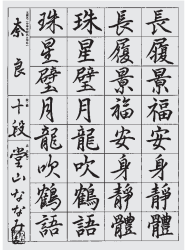 長履景福安身靜體
長履景福安身靜體
珠星璧月龍吹鶴語
珠星璧月龍吹鶴語
奈良 十段 堂山なな